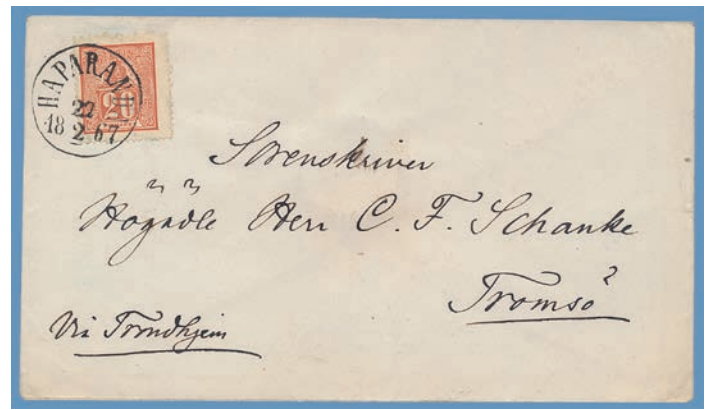 HAPARAND
22
18 2 67
20
Sorenskriver
Högädle Herr C. F. Schanke
Tromsö
Via Trondhjem